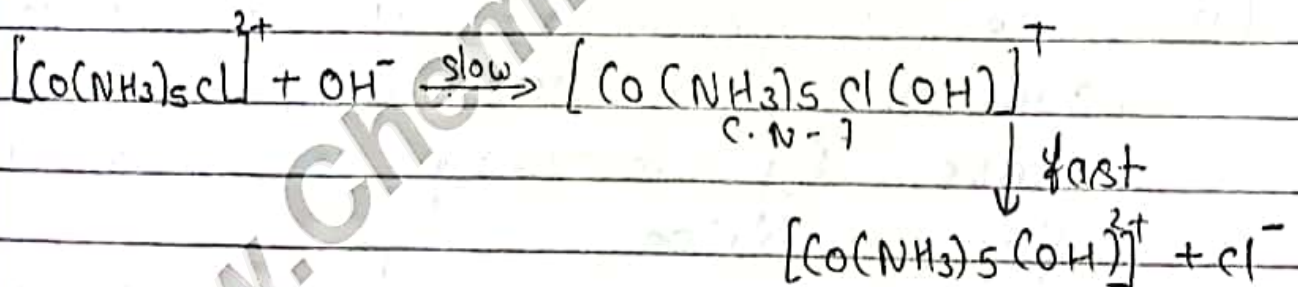 [Co(NH3)5Cl]2+ + OH- slow→ [Co(NH3)5Cl(OH)]+
C.N-7
↓ fast
[Co(NH3)5(OH)]2+ + Cl-
www.Chem